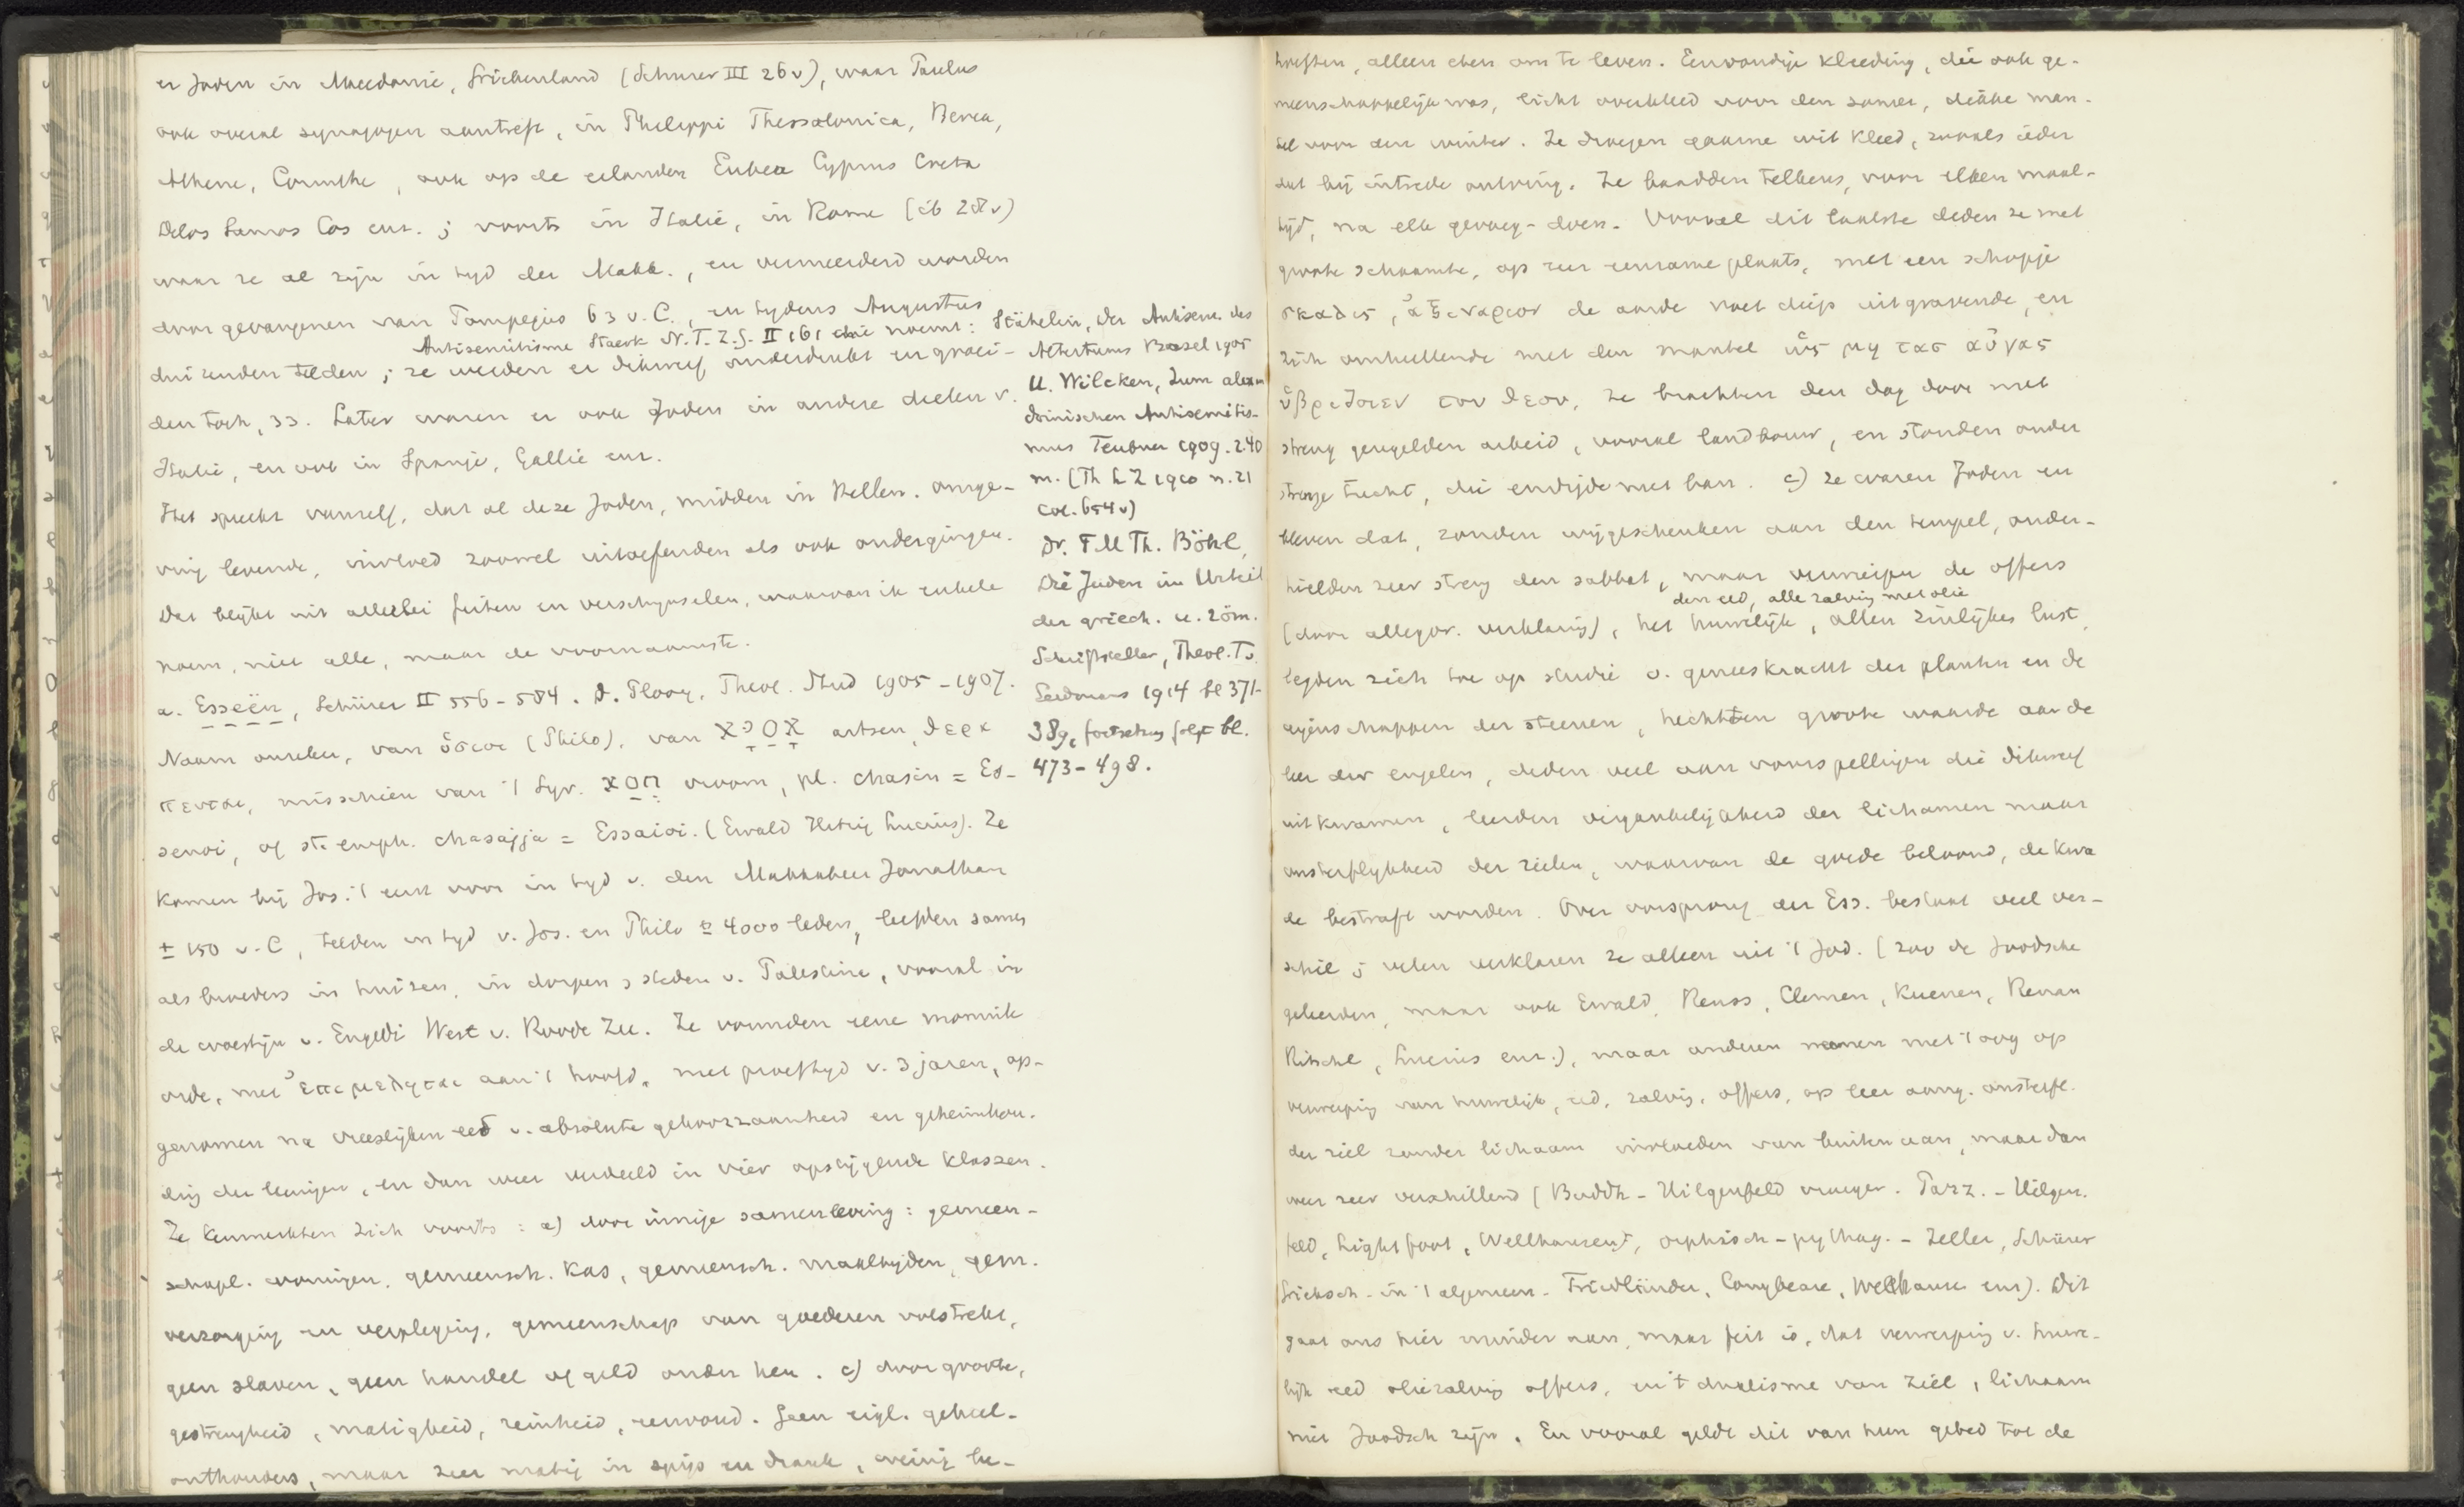 er Joden in Macedonië, Griekenland (Schurer III 26v), waar Paulus
ook overal synagogen aantreft, in Philippi Thessalonica, Berea,
Athene, Corinthe, ook op de eilanden Eubea Cyprus Creta
Delos Samos Cos enz. ; voorts in Italië, in Rome (ib 28v)
waar ze al zijn in tyd der Makk., en vermeerderd worden
door gevangenen van Pompejus 63 v.C., en tydens Augustus
Antisemitisme Staerk N.T. Z.G. II 161 die noemt: Stähelin, Der Antisem. des
duizenden telden ; ze werden er dikwerf onderdrukt en groei-
den toch, 33. Later waren er ook Joden in andere deelen v.
Italië, en ook in Spanje, Gallië enz.
Het spreekt vanzelf, dat al deze Joden, midden in Hellen. omge-
ving levende, invloed zoowel uitoefenden als ook ondergingen.
Dat blijkt uit allerlei feiten en verschynselen, waarvan ik enkele
noem, niet alle, maar de voornaamste.
a. Esseën, Schürer II 556-584. D. Plooy, Theol. Stud 1905-1907.
Naam onzeker, van ὅσιοι (Philo), van אסיא artsen, θερα
πευται, misschien van 't Syr. חסא vroom, pl. chasin = Es-
senoi, of st. emph. chasajja = Essaioi. (Ewald Hitzig Lucius). Ze
komen bij Jos. 't eerst voor in tyd v. den Makkabeer Jonathan
± 150 v.C, telden in tyd v. Jos. en Philo ± 4000 leden, leefden samen
als broeders in huizen, in dorpen, steden v. Palestina, vooral in
de woestijn v. Engedi West v. Roode Zee. Ze vormden eene monnik
orde, met ἐπιμεληται aan 't hoofd, met proeftyd v. 3 jaren, op-
genomen na vreeslijken eed v. absolute gehoorzaamheid en geheimhou-
ding der leeringen, en dan weer verdeeld in vier opstijgende klassen.
Ze kenmerkten zich voorts : a) door innige samenleving : gemeen-
schapl. woningen, gemeensch. kas, gemeensch. maaltyden, gem.
verzorging en verpleging, gemeenschap van goederen volstrekt,
geen slaven, geen handel of geld onder hen. c) door groote,
gestrengheid, matigheid, reinheid, eenvoud. Geen eigl. geheel-
onthouders, maar zeer matig in spijs en drank, weinig be-
Altertums Basel 1905
U. Wilcken, Zum alexan
drinischen Antisemitis-
mus Teubner 1909. 2.40
m. (Th L Z 1910 n. 21
col. 654v)
Dr. F M Th. Böhl,
Die Juden im Urteil
der griech. u. röm.
Schriftsteller, Theol. Ts.
Eerdmans 1914 bl 371-
389, fortsetzung folgt bl.
473-498.
hoeften, alleen eten om te leven. Eenvoudige kleeding, die ook ge-
meenschappelijk was, licht overkleed voor den zomer, dikke man-
tel voor den winter. Ze droegen gaarne wit kleed, zooals ieder
dat bij intrede ontving. Ze baadden telkens, voor elken maal-
tijd, na elk gevoeg-doen. Vooral dit laatste deden ze met
groote schaamte, op eene eenzame plaats, met een schopje
σκαλις, ἀξιναριον de aarde voet diep uitgravende, en
zich omhullende met den mantel ὡς μη τας αὐγας
ὑβριζοιεν του θεου. Ze brachten den dag door met
streng geregelden arbeid, vooral landbouw, en stonden onder
strenge tucht, die eindigde met ban. c) ze waren Joden en
bleven dat, zonden wijgeschenken aan den tempel, onder-
hielden zeer streng den sabbat, maar verwierpen de offers
den eed, alle zalving met olie
(door allegor. verklaring), het huwelijk, allen zinlijken lust,
legden zich toe op studie v. geneeskracht der planten en de
eigenschappen der steenen, hechtten groote waarde aan de
leer der engelen, deden veel aan voorspellingen die dikwerf
uitkwamen, leerden vergankelijkheid der lichamen maar
onsterflykheid der zielen, waarvan de goede beloond, de kwa
de bestraft worden. Over oorsprong der Ess. bestaat veel ver-
schil ; velen verklaren ze alleen uit 't Jod. (zoo de Joodsche
geleerden, maar ook Ewald, Reuss, Clemen, Kuenen, Renan
Ritschl, Lucius enz.), maar anderen nemen met 't oog op
verwerping van huwelijk, eed, zalving, offers, op leer aang. onsterfl.
der ziel zonder lichaam invloeden van buiten aan, maar dan
weer zeer verschillend (Buddh - Hilgenfeld vroeger. Parz. - Hilgen.
feld, Lightfoot, Wellhausen?, orphisch - pythag. - Zeller, Schürer
Grieksch - in 't algemeen - Friedländer, Conybeare, Wellhausen enz). Dit
gaat ons hier minder aan, maar feit is, dat verwerping v. huwe-
lijk eed oliezalving offers, en 't dualisme van ziel, lichaam
niet Joodsch zijn. En vooral geldt dit van hun gebed tot de